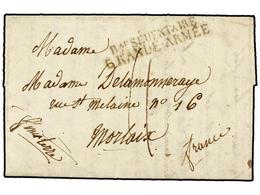 Bau SÉDENTAIRE
GRANDE-ARMÉE
Madame
Madame Delamonneraye
rue St Melaine no 16
Morlaix
finisterre
france